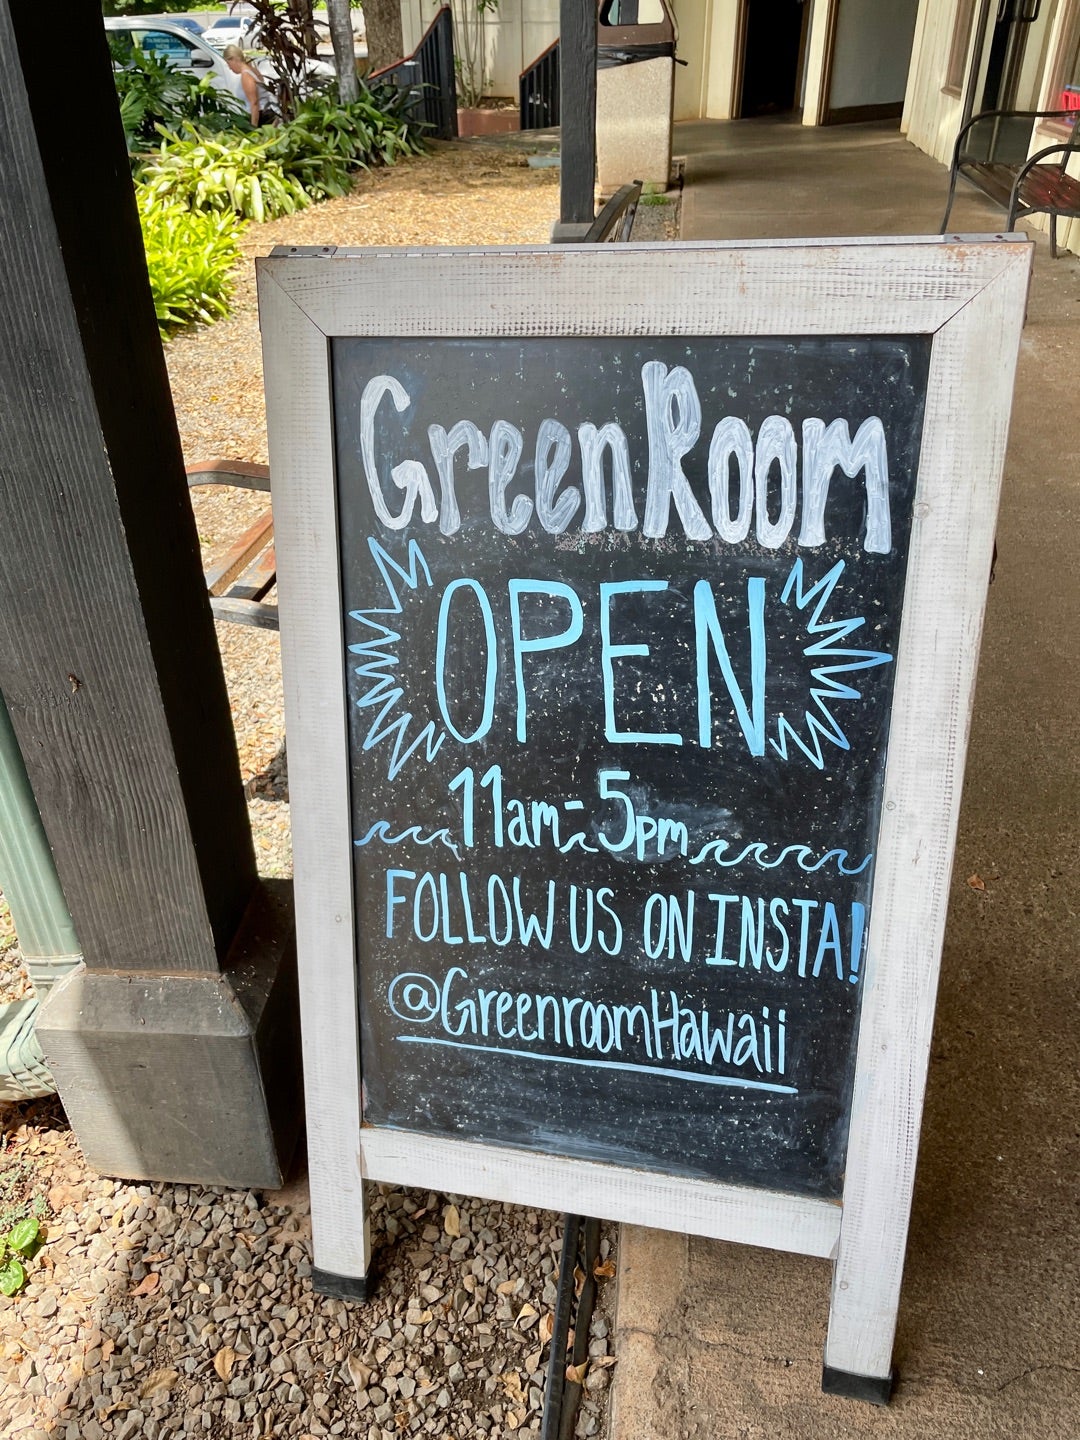 GreenRoom
OPEN
11am-5pm
FOLLOW US ON INSTA!
@GreenroomHawaii